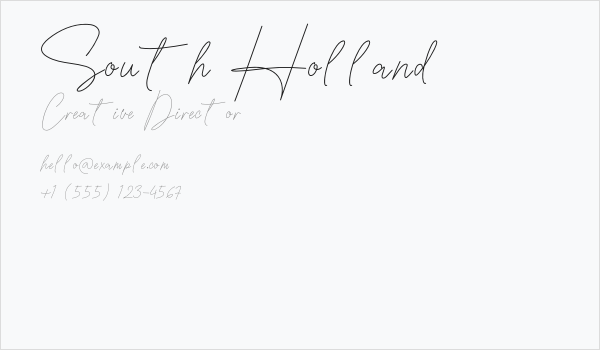 South Holland
Creative Director
hello@example.com
+1 (555) 123-4567